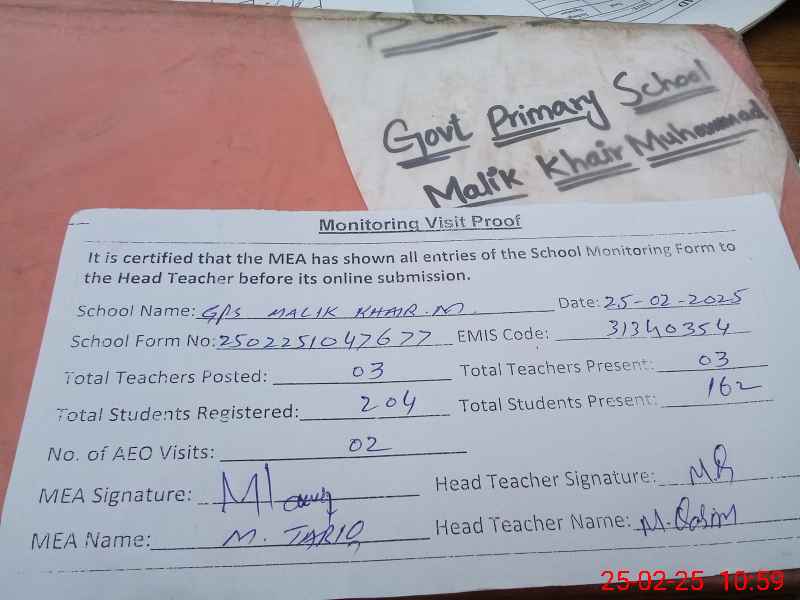 Govt Primary School
Malik Khair Muhammad
Monitoring Visit Proof
It is certified that the MEA has shown all entries of the School Monitoring Form to
the Head Teacher before its online submission.
School Name: GPS MALIK KHAIR.M. Date: 25-02-2025
School Form No: 2502251047677 EMIS Code: 31340354
Total Teachers Posted: 03 Total Teachers Present: 03
Total Students Registered: 204 Total Students Present: 162
No. of AEO Visits: 02
MEA Signature: Head Teacher Signature:
MEA Name: M. TARIQ Head Teacher Name: M. Qasim
25-02-25 10:59